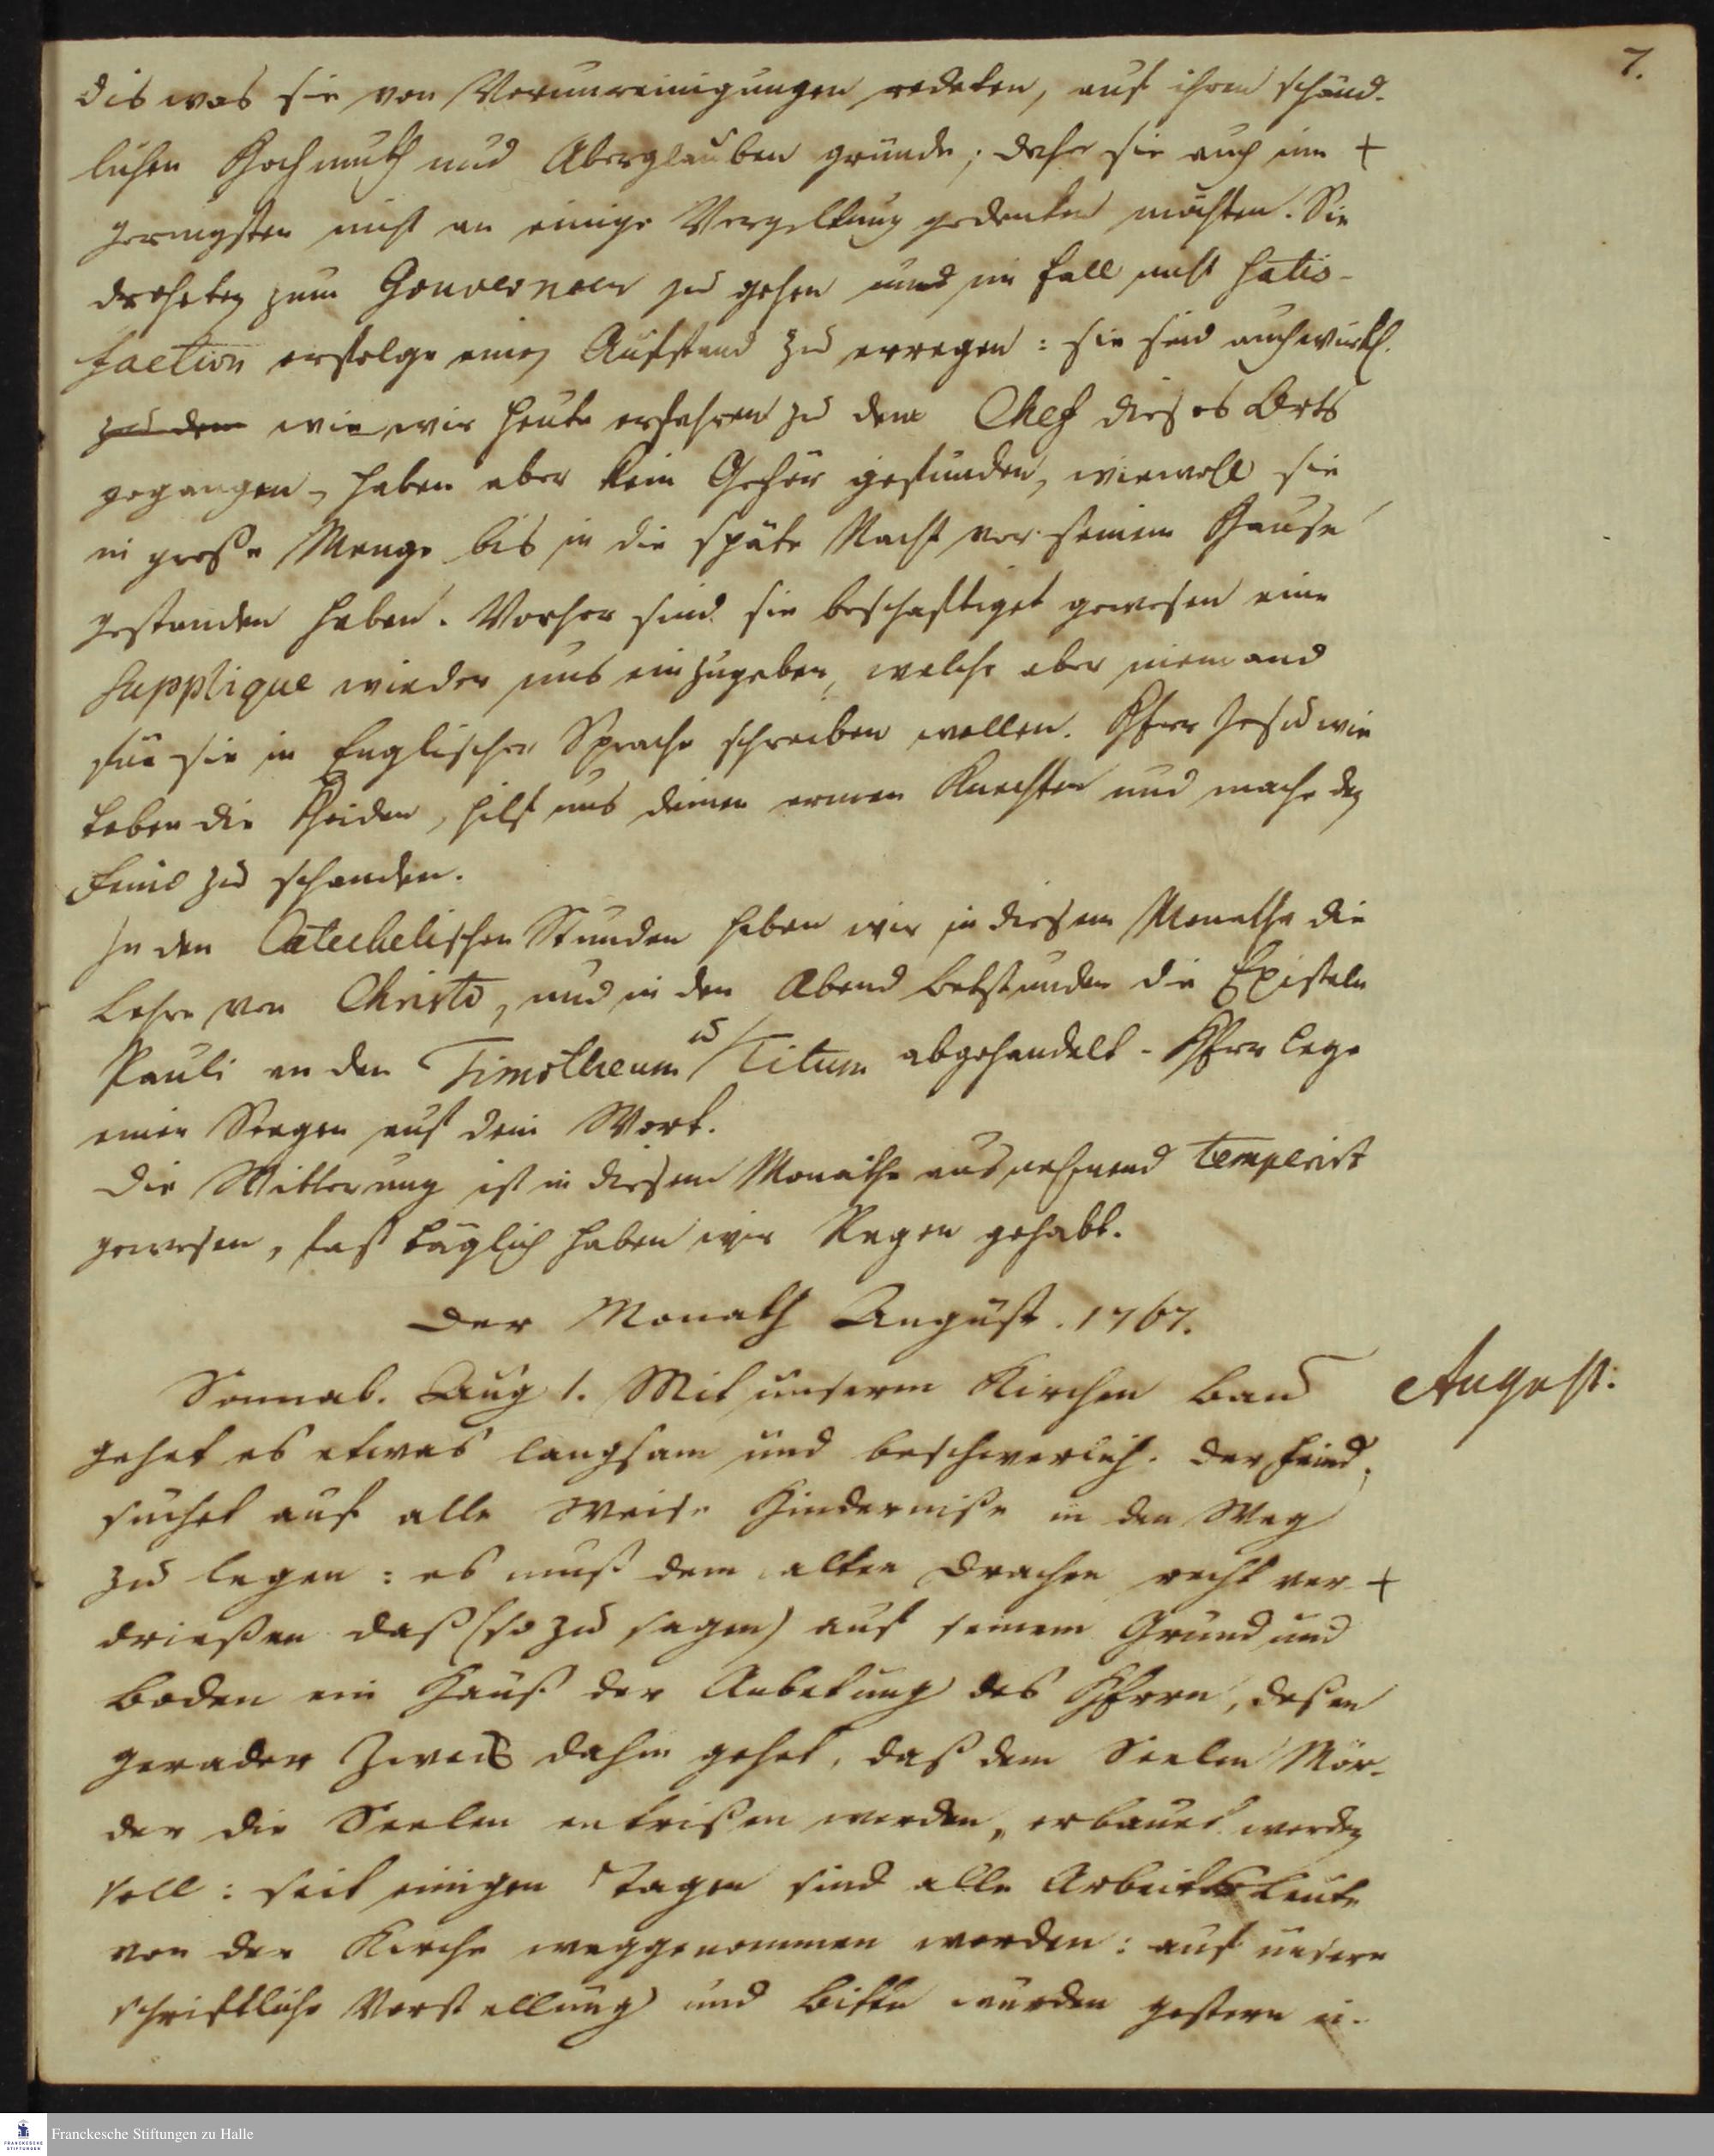 7.
dis was sie von Verunreinigungen redeten, auf ihren schänd-
lichen Hochmuth und Aberglauben gründe; daher sie auch im +
geringsten nicht an einige Vergeltung gedenken möchten. Sie
droheten zum Gouverneur zu gehen und im fall nicht satis-
faction erfolge einen Aufstand zu erregen: sie sind auch würkl.
zu dem wie wir heute erfahren zu dem Chef dieses Orts
gegangen, haben aber kein Gehör gefunden, wiewoll sie
in große Menge bis in die späte Nacht vor seinem Hause
gestanden haben. Vorher sind sie beschäftiget gewesen eine
Supplique wieder uns einzugeben, welche aber niemand
für sie in Englischer Sprache schreiben wollen. HErr Jesu wie
toben die Heiden, hilf uns deinen armen Knechten und mache den
Feind zu schanden.
In den Catechetischen Stunden haben wir in diesem Monathe die
Lehre von Christo, und in den Abend betstunden die Episteln
Pauli an den Timotheum u Titum abgehandelt. HErr lege
einen Seegen auf dein Wort.
Die Witterung ist in diesem Monathe ausnehmend temperirt
gewesen, fast täglich haben wir Regen gehabt.
Der Monath August. 1767.
Sonnab. Aug 1. Mit unserm Kirchen bau
August.
gehet es etwas langsam und beschwerlich. der Feind
suchet auf alle Weise Hinderniße in den Weg
zu legen: es muß dem alten Drachen recht ver- +
drießen daß (so zu sagen) auf seinem Grund und
boden ein Hauß der Anbetung des HErrn, deßen
gerader Zweck dahin gehet, daß dem Seelen Mör-
der die Seelen entrißen werden, erbauet werden
soll: seit einigen Tagen sind alle Arbeitsleute
von der Kirche weggenommen worden: auf unsere
schriftliche Vorstellung und bitte wurden gestern u.
Franckesche Stiftungen zu Halle